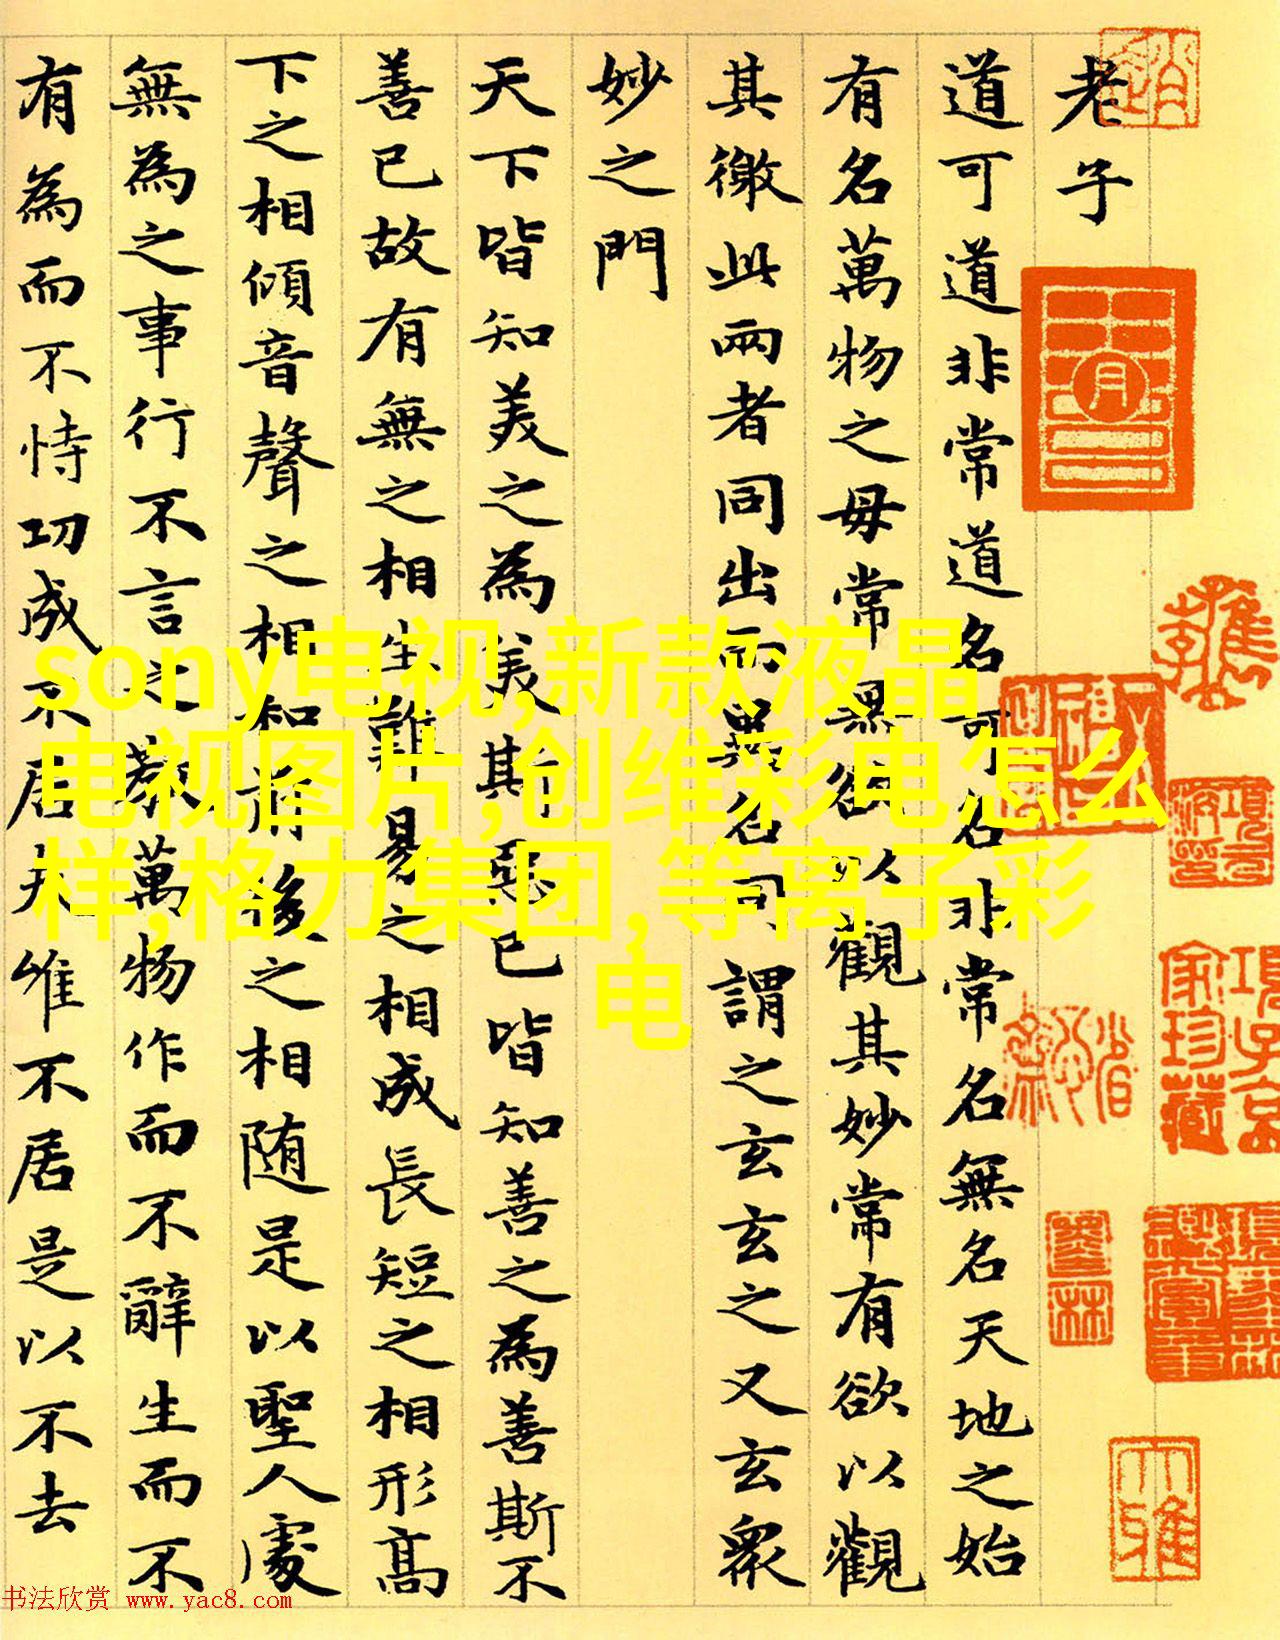 老子
道可道非常道名可名非常名無名天地之始
有名萬物之母常無欲以觀其妙常有欲以觀
其徼此兩者同出而異名同謂之玄玄之又玄衆
妙之門
天下皆知美之為美斯惡已皆知善之為善斯不
善已故有無之相生難易之相成長短之相形高
下之相傾音聲之相和前後之相随是以聖人處
無為之事行不言之教萬物作而不辭生而不
有為而不恃功成不居夫唯不居是以不去
sony电视,新款液晶
电视图片,创维彩电怎么
样,格力集团,等离子彩
电
书法欣赏 www.yac8.com